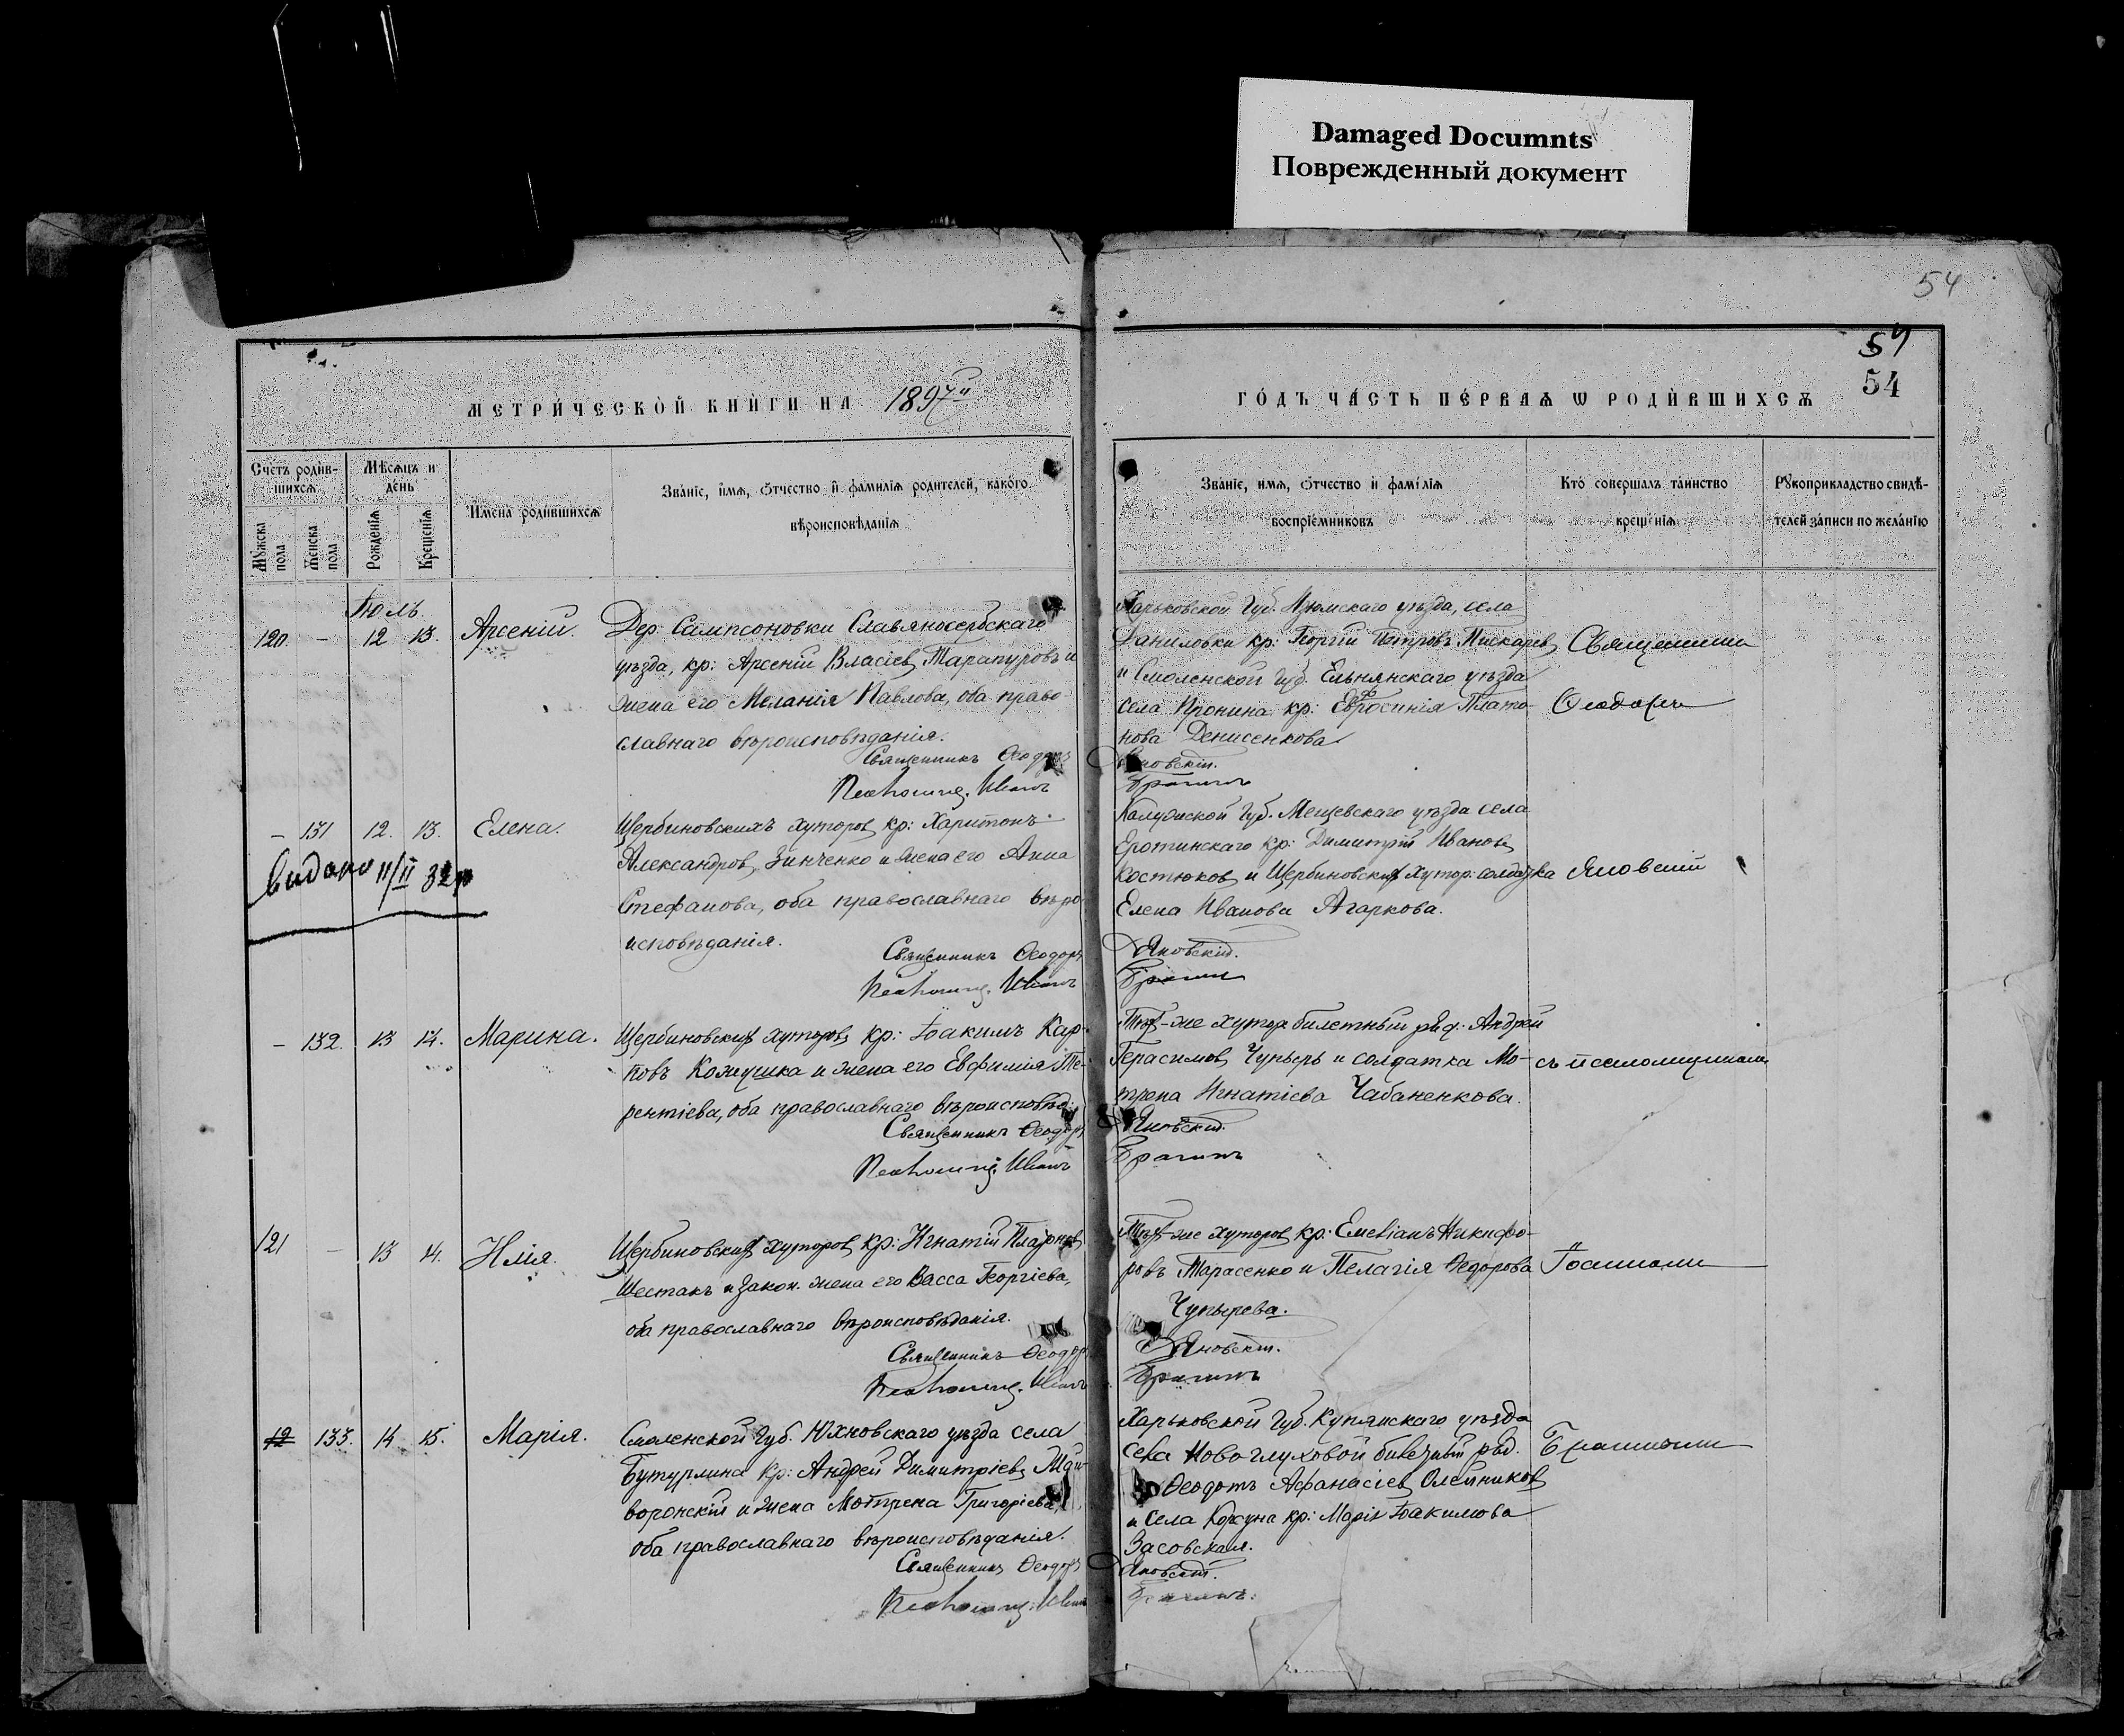 Damaged Documnts
Поврежденный документ
54
54
54
МЕТРИЧЕСКОЙ КНИГИ НА 1897й
ГОДЪ ЧАСТЬ ПЕРВАѦ Ѡ РОДИВШИХСѦ
Счетъ родив-
шихсѧ
Мѣсѧцъ и
день
Мужска пола
Женска пола
Рожденїѧ
Крещенїѧ
Имена родившихсѧ
Званїе, имѧ, ѻтчество и фамилїѧ родителей, какого
вѣроисповѣданїѧ
Званїе, имѧ, ѻтчество и фамїлїѧ
воспрїемниковъ
Кто совершалъ таинство
крещенїѧ
Рꙋкоприкладство свидѣ-
телей записи по желанїю
Іюль.
120. - 12 13. Арсеній.
Дер. Сампсоновки Славяносербскаго
уѣзда, кр: Арсеній Власіевъ и
жена его Меланія Павлова, оба право-
славнаго вѣроисповѣданія.
Священникъ Ѳеодоръ
Псаломщ. Иванъ
Харьковской Губ. Изюмскаго уѣзда, села
Даниловки кр: Георгій Петровъ Пискаревъ
и Смоленской Губ. Ельнянскаго уѣзда
села Пронина кр: Евфросинія Плато-
нова Денисенкова.
Яновскій.
Брагинъ
Священникъ
Ѳеодоръ
- 131 12. 13. Елена.
видано 11/II 32р
Щербиновскихъ хуторовъ кр: Харитонъ
Александровъ Зинченко и жена его Анна
Стефанова, оба православнаго вѣро-
исповѣданія.
Священникъ Ѳеодоръ
Псаломщ. Иванъ
Калужской Губ. Мещевскаго уѣзда села
кр: Димитрій Ивановъ
Костюковъ и Щербиновскихъ хутор: солдатка
Елена Иванова Агаркова.
Яновскій.
Брагинъ
Яновскій
- 132. 13 14. Марина.
Щербиновскихъ хуторовъ кр: Іоакимъ Кар-
повъ Кожушка и жена его Евфимія Те-
рентіева, оба православнаго вѣроисповѣд:
Священникъ Ѳеодоръ
Псаломщ. Иванъ
Тѣхъ-же хутор билетный ряд: Андрей
Герасимовъ Чупырь и солдатка Мо-
трена Игнатіева Чабаненкова.
Яновскій.
Брагинъ
съ псаломщикомъ
121 - 13 14. Илія.
Щербиновскихъ хуторовъ кр: Игнатій Платоновъ
Шестакъ и закон. жена его Васса Георгіева,
оба православнаго вѣроисповѣданія.
Священникъ Ѳеодоръ
Псаломщ. Иванъ
Тѣхъ-же хуторовъ кр: Емеліанъ Никифо-
ровъ Тарасенко и Пелагія Ѳедорова
Чупырева.
Яновскій.
Брагинъ
Іоанномъ
12 133. 14 15. Марія.
Смоленской Губ. Юхновскаго уѣзда села
Бутурлина кр: Андрей Димитріевъ
и жена Мотрена Григоріева,
оба православнаго вѣроисповѣданія.
Священникъ Ѳеодоръ
Псаломщ. Иванъ
Харьковской Губ. Купянскаго уѣзда
села Новоглуховой билетный ряд.
Ѳеодотъ Афанасіевъ Олейниковъ
и села Корсуна кр: Марія Іоакимова
Засовская.
Яновскій.
Брагинъ.
Брагинымъ